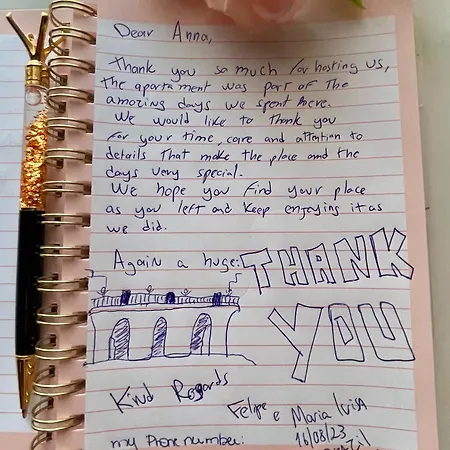 Dear Anna,
Thank you so much for hosting us,
the apartament was part of the
amazing days we spent here.
We would like to thank you
for your time, care and attention to
details that make the place and the
days very special.
We hope you find your place
as you left and keep enjoying it as
we did.
Again a huge: THANK
YOU
Kind Regards
Felipe e Maria luisa
16/08/23
my Phone number: